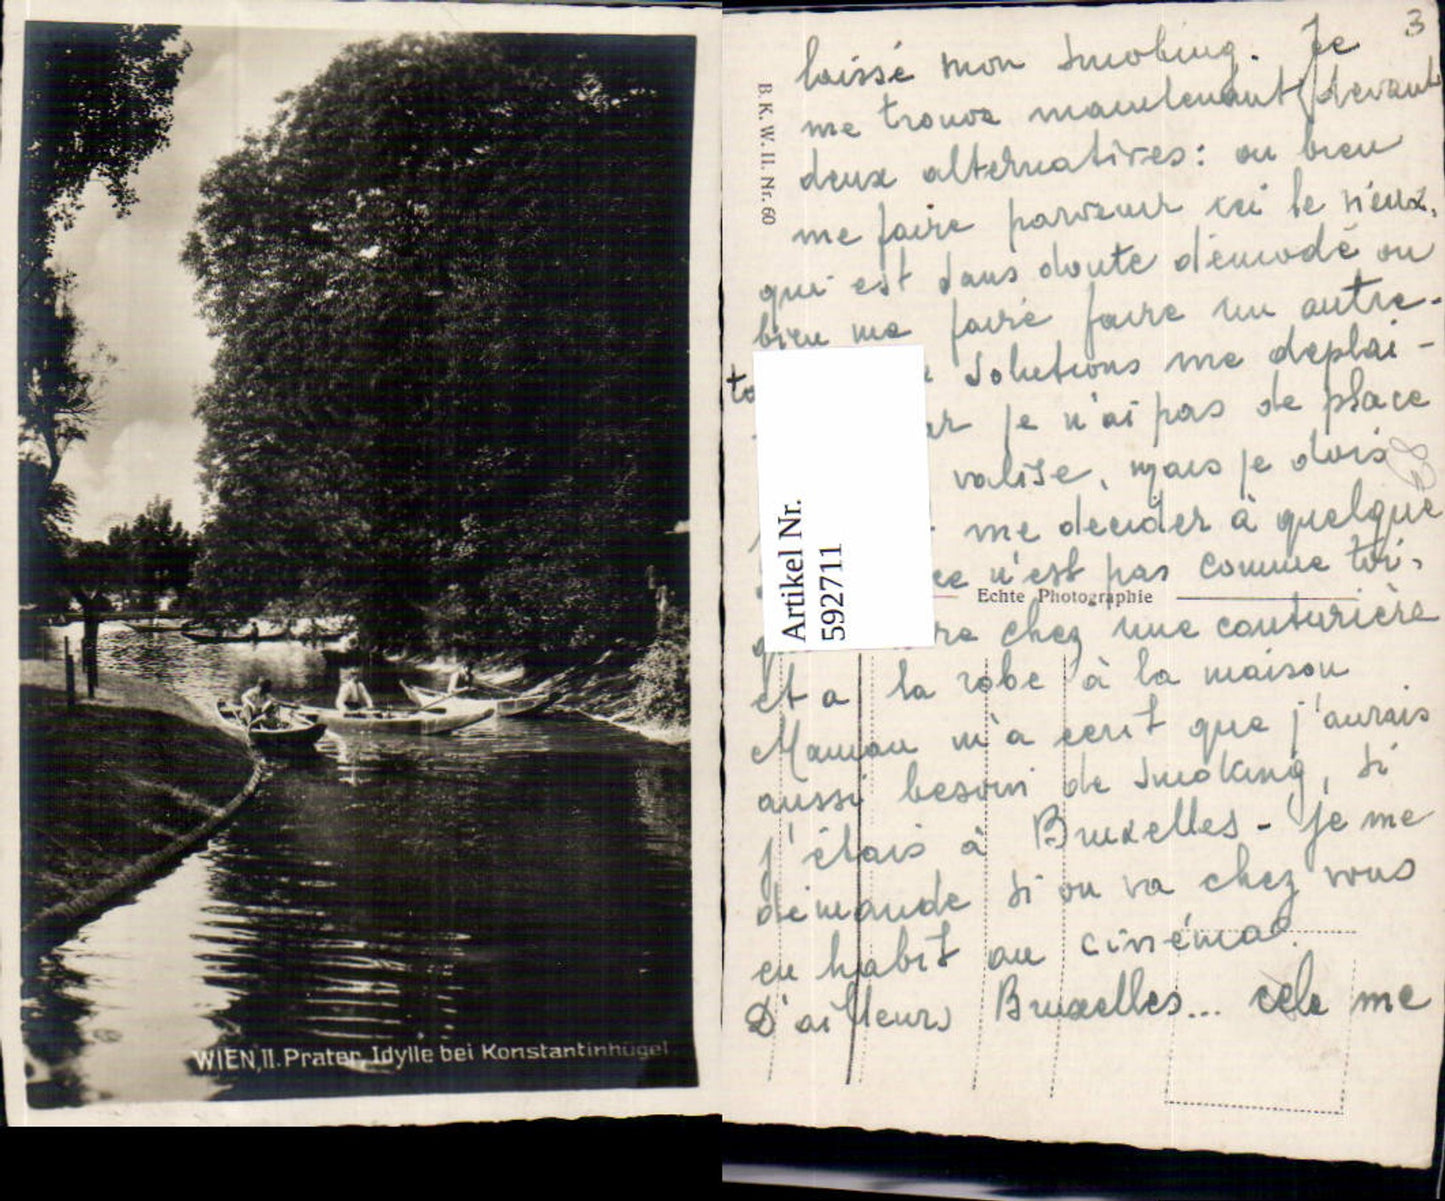 WIEN, II. Prater, Idylle bei Konstantinhügel.
B. K. W. II. Nr. 60
3
laissé mon smoking. Je
me trouve maintenant devant
deux alternatives: ou bien
me faire parvenir ici le vieux,
qui est sans doute démodé ou
bien me faire faire un autre.
solutions me deplai-
je n'ai pas de place
valise, mais je dois
me decider à quelque
ce n'est pas comme toi,
Echte Photographie
chez une couturière
et a la robe à la maison
Maman m'a ecrit que j'aurais
aussi besoin de smoking, si
j'étais à Bruxelles - je me
demande si on va chez vous
en habit au cinéma?
D'ailleurs Bruxelles... cela me
Artikel Nr.
592711